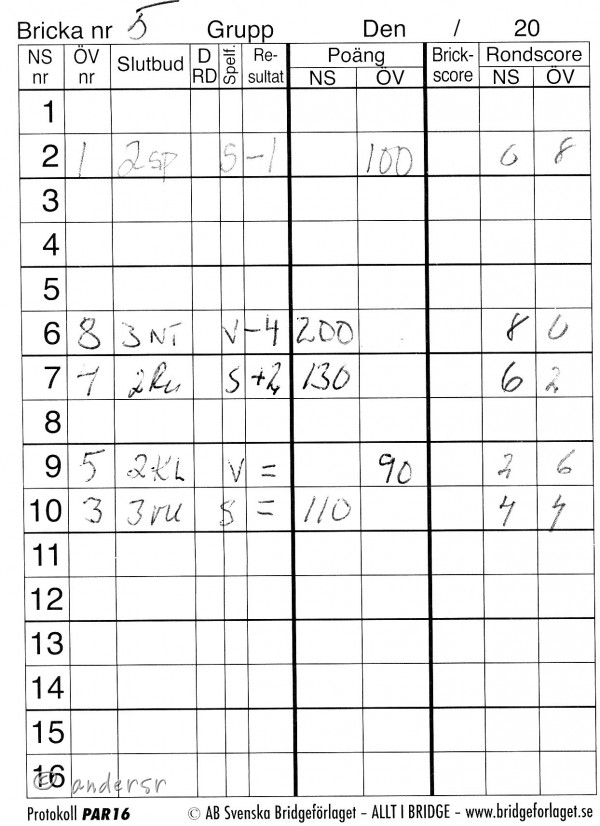 Bricka nr 5 Grupp Den / 20
NS nr ÖV nr Slutbud D RD Spelf. Re-sultat Poäng NS ÖV Brick-score Rondscore NS ÖV
1
2 1 2sp S -1 100 0 8
3
4
5
6 8 3NT V -4 200 8 0
7 4 2Ru S +2 130 6 2
8
9 5 2KL V = 90 2 6
10 3 3ru S = 110 4 4
11
12
13
14
15
16
© andersr
Protokoll PAR16 © AB Svenska Bridgeförlaget – ALLT I BRIDGE – www.bridgeforlaget.se